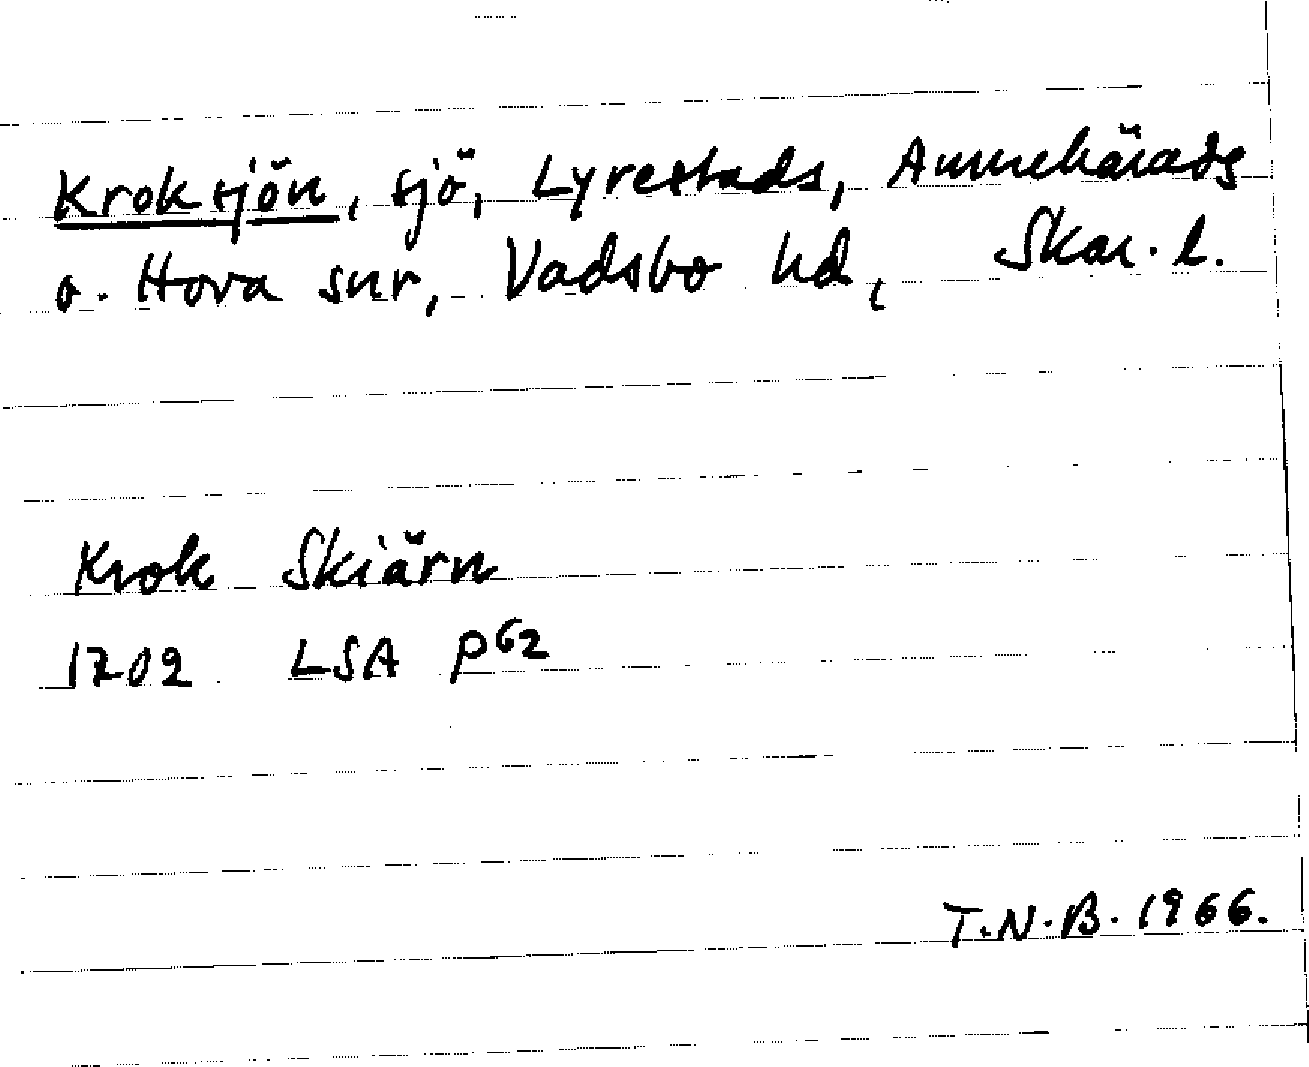 Kroksjön, sjö, Lyrestads, Amnehärads
o. Hova snr, Vadsbo hd, Skar. l.
Krok Skiärn
1702 LSA P62
T.N.B. 1966.